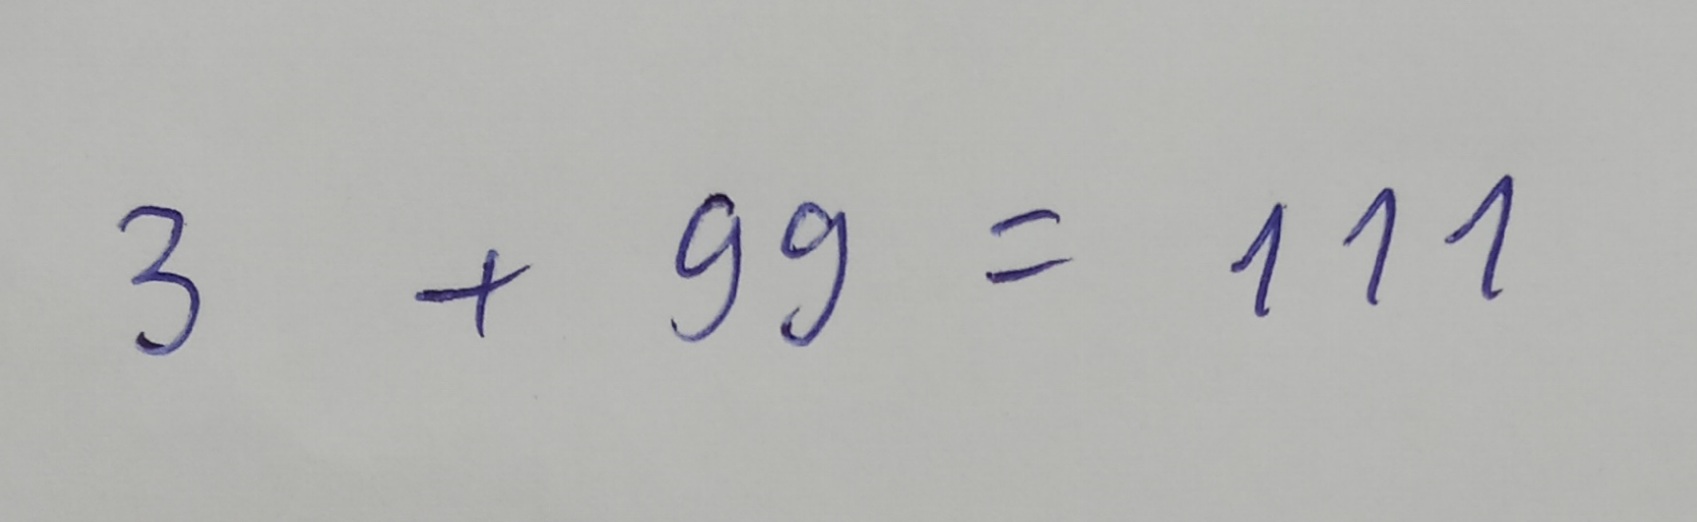 3 + 99 = 111